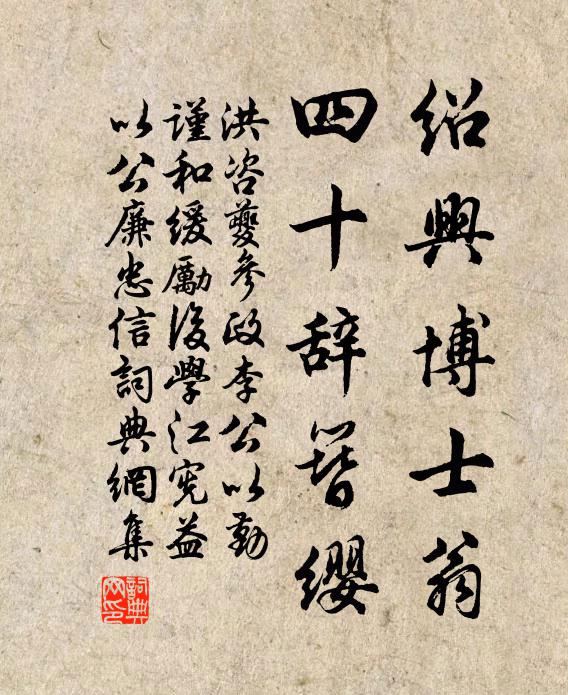 绍興博士翁
四十辞簪缨
洪咨夔參政李公以勤
謹和緩厲後學江宪益
以公廉忠信詞典網集
詞典網印